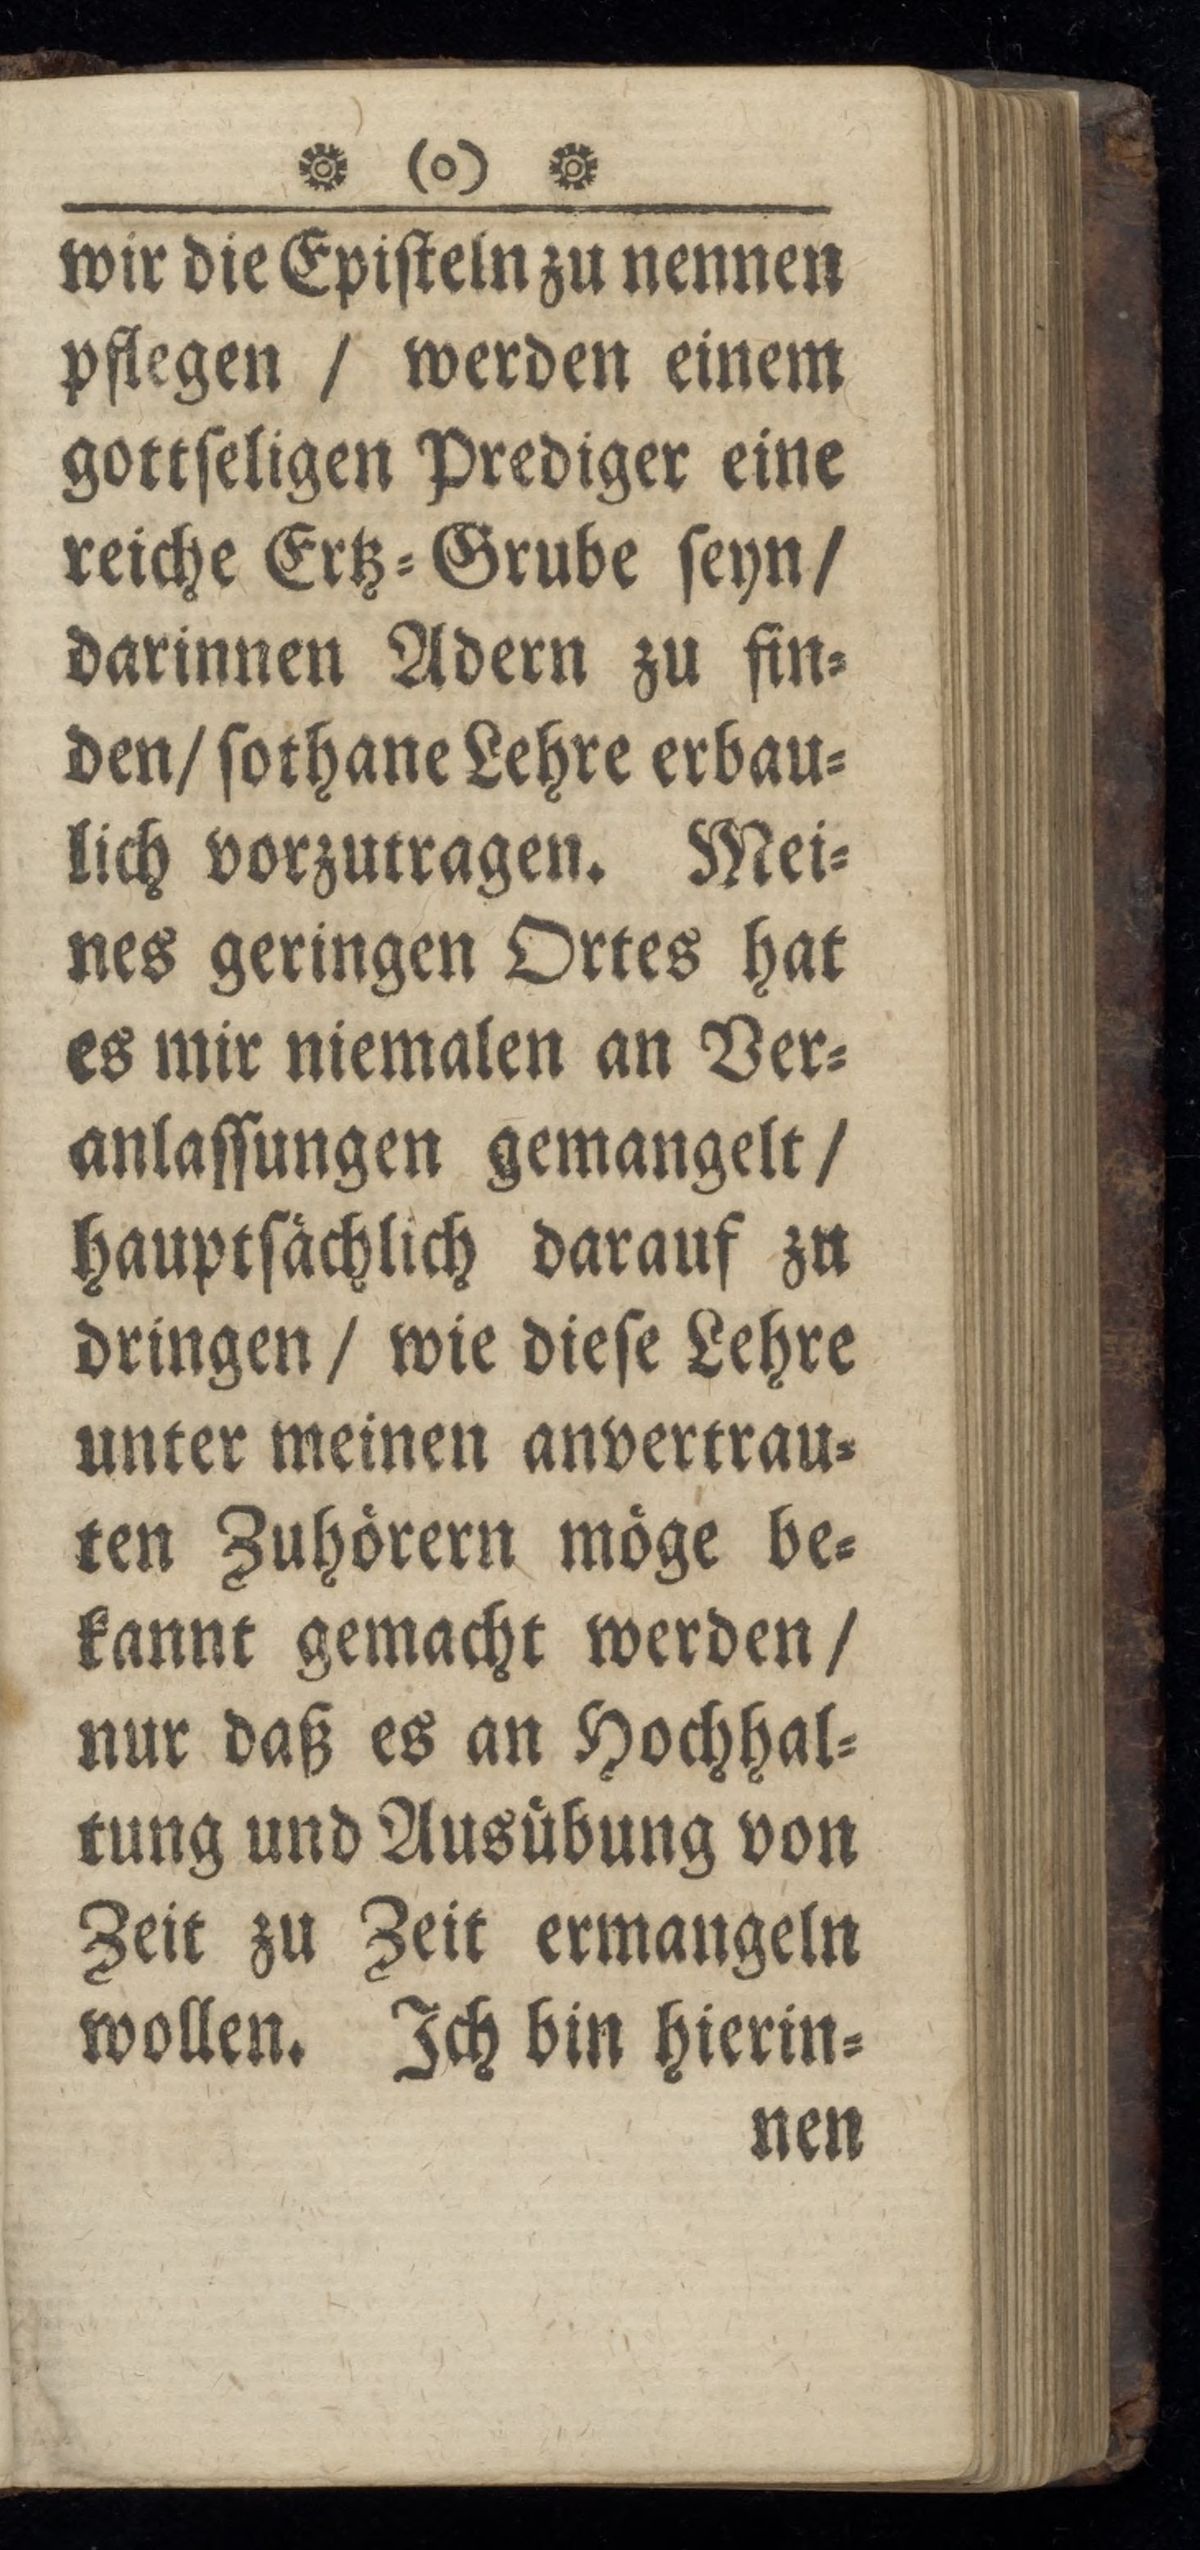 ❁ (o) ❁
wir die Epiſteln zu nennen
pflegen / werden einem
gottſeligen Prediger eine
reiche Ertz⸗Grube ſeyn/
darinnen Adern zu fin⸗
den/ ſothane Lehre erbau⸗
lich vorzutragen. Mei⸗
nes geringen Ortes hat
es mir niemalen an Ver⸗
anlaſſungen gemangelt /
hauptſaͤchlich darauf zu
dringen / wie dieſe Lehre
unter meinen anvertrau⸗
ten Zuhoͤrern moͤge be⸗
kannt gemacht werden /
nur daß es an Hochhal⸗
tung und Ausuͤbung von
Zeit zu Zeit ermangeln
wollen. Ich bin hierin⸗
nen